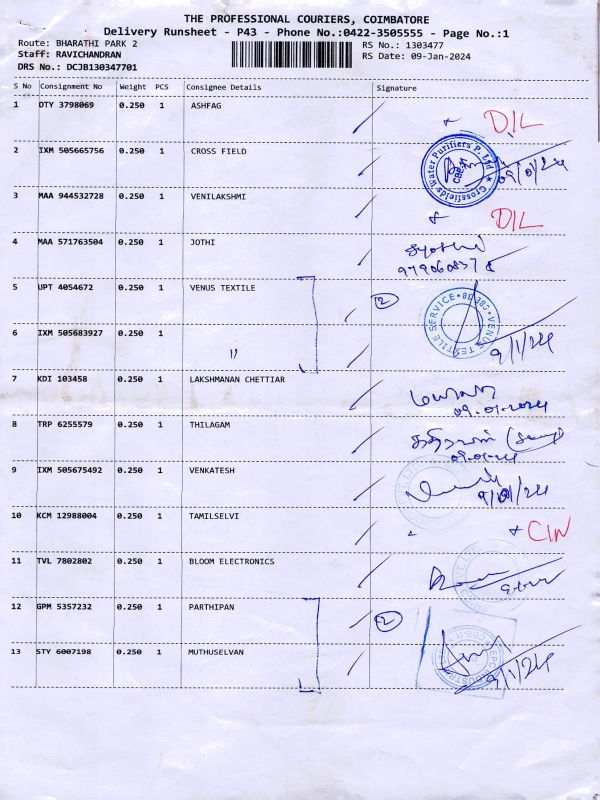 THE PROFESSIONAL COURIERS, COIMBATORE
Delivery Runsheet - P43 - Phone No.:0422-3505555 - Page No.:1
Route: BHARATHI PARK 2
RS No.: 1303477
Staff: RAVICHANDRAN
RS Date: 09-Jan-2024
DRS No.: DCJB130347701
S No Consignment No Weight PCS Consignee Details Signature
1 DTY 3798069 0.250 1 ASHFAG D/L
2 IXM 505665756 0.250 1 CROSS FIELD
Crossfields Water Purifiers P. Ltd CBE
3 MAA 944532728 0.250 1 VENILAKSHMI D/L
4 MAA 571763504 0.250 1 JOTHI Jyothi
5 UPT 4054672 0.250 1 VENUS TEXTILE 2
VENUS TEXTILE SERVICE
6 IXM 505683927 0.250 1 "
9/1/24
7 KDI 103458 0.250 1 LAKSHMANAN CHETTIAR
09.01.2024
8 TRP 6255579 0.250 1 THILAGAM
09.01.24
9 IXM 505675492 0.250 1 VENKATESH
10 KCM 12988004 0.250 1 TAMILSELVI C/N
11 TVL 7802802 0.250 1 BLOOM ELECTRONICS
12 GPM 5357232 0.250 1 PARTHIPAN 2
13 STY 6007198 0.250 1 MUTHUSELVAN
9/1/24